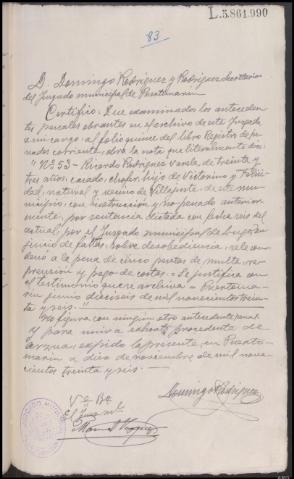 L.5.861.990
83
D. Domingo Rodríguez y Rodríguez Secretario
del Juzgado municipal de
Certifico: Que examinados los anteceden
tes penales obrantes en el archivo de este Juzgado
a mi cargo, al folio quince del libro Registro de pe
nados corriente, obra la nota que literalmente dice:
"Nº 53 - Ricardo Rodríguez Varela, de treinta y
tres años, casado, chofer, hijo de Victorino y
natural y vecino de Villajuste de este mu
nicipio, con instrucción y no penado anterior
mente, por sentencia dictada con fecha seis del
actual, por el Juzgado municipal de en
juicio de faltas, sobre desobediencia, se le con
denó a la pena de cinco pesetas de multa, re
prensión y pago de costas. Se justifica con
el testimonio que se archiva.
rín junio dieciseis de mil novecientos trein
ta y seis.
No figura con ningún otro antecedente penal
y para unir a procedente de
Arzua, expido la presente en Puerto
marín a diez de noviembre de mil nove
cientos treinta y seis.
Domingo Rodríguez
Vº Bº
El Juez ml.